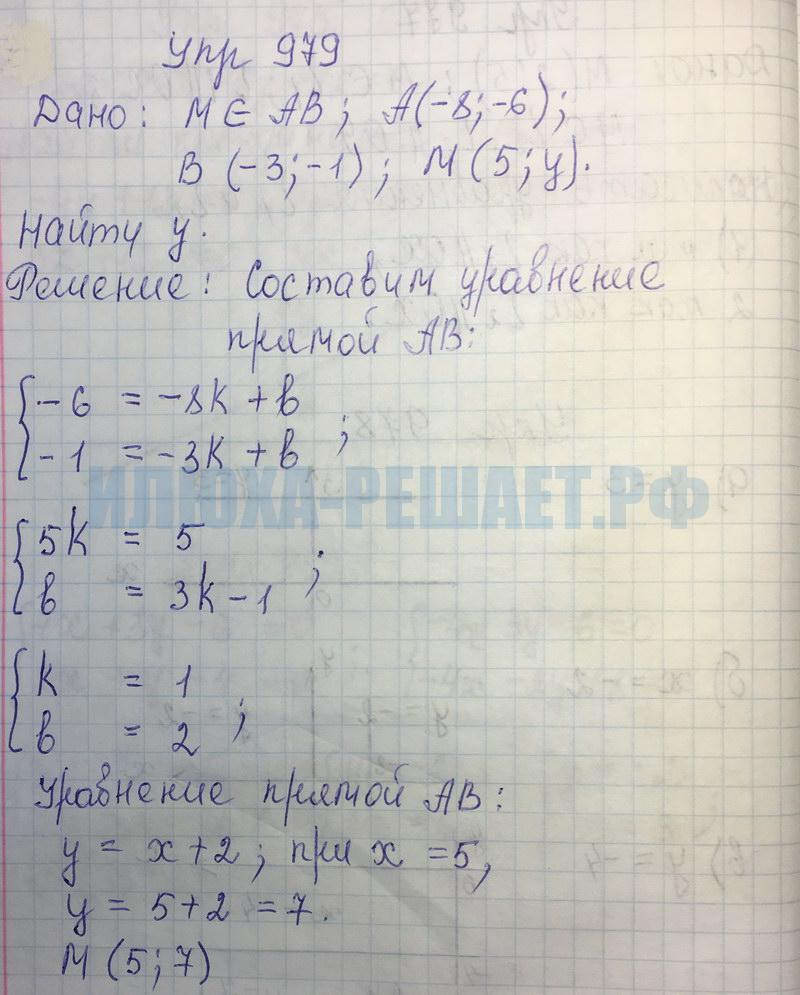 Упр 979
Дано: M ∈ AB; A(-8;-6);
B (-3;-1); M (5; y).
Найти y.
Решение: Составим уравнение
прямой AB:
{ -6 = -8k + b
{ -1 = -3k + b ;
ИЛЮХА-РЕШАЕТ.РФ
{ 5k = 5
{ b = 3k - 1 ;
{ k = 1
{ b = 2 ;
Уравнение прямой AB:
y = x + 2; при x = 5,
y = 5 + 2 = 7.
M (5; 7)